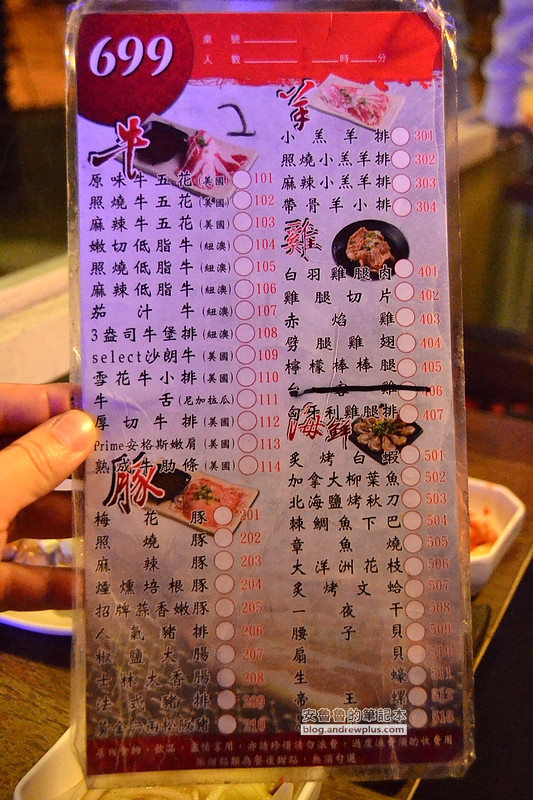 699
桌號
人數 時 分
2
牛
原味牛五花(美國) 101
照燒牛五花(美國) 102
麻辣牛五花(美國) 103
嫩切低脂牛(紐澳) 104
照燒低脂牛(紐澳) 105
麻辣低脂牛(紐澳) 106
茄汁牛(紐澳) 107
3盎司牛堡排(紐澳) 108
select沙朗牛(美國) 109
雪花牛小排(美國) 110
牛舌(尼加拉瓜) 111
厚切牛排(美國) 112
Prime安格斯嫩肩(美國) 113
熟成牛肋條(美國) 114
豚
梅花豚 201
照燒豚 202
麻辣豚 203
煙燻培根豚 204
招牌蒜香嫩豚 205
人氣豬排 206
椒鹽大腸 207
士林大香腸 208
法式豬排 209
黃金六兩松阪豬 210
羊
小羔羊排 301
照燒小羔羊排 302
麻辣小羔羊排 303
帶骨羊小排 304
雞
白羽雞腿肉 401
雞腿切片 402
赤焰雞 403
劈腿雞翅 404
檸檬棒棒腿 405
台客雞 406
匈牙利雞腿排 407
海鮮
炙烤白蝦 501
加拿大柳葉魚 502
北海鹽烤秋刀 503
棘鯛魚下巴 504
章魚燒 505
大洋洲花枝 506
炙烤文蛤 507
一夜干 508
腰子貝 509
扇貝 510
生蠔 511
帝王螺 512
513
安魯魯的筆記本
blog.andrewplus.com